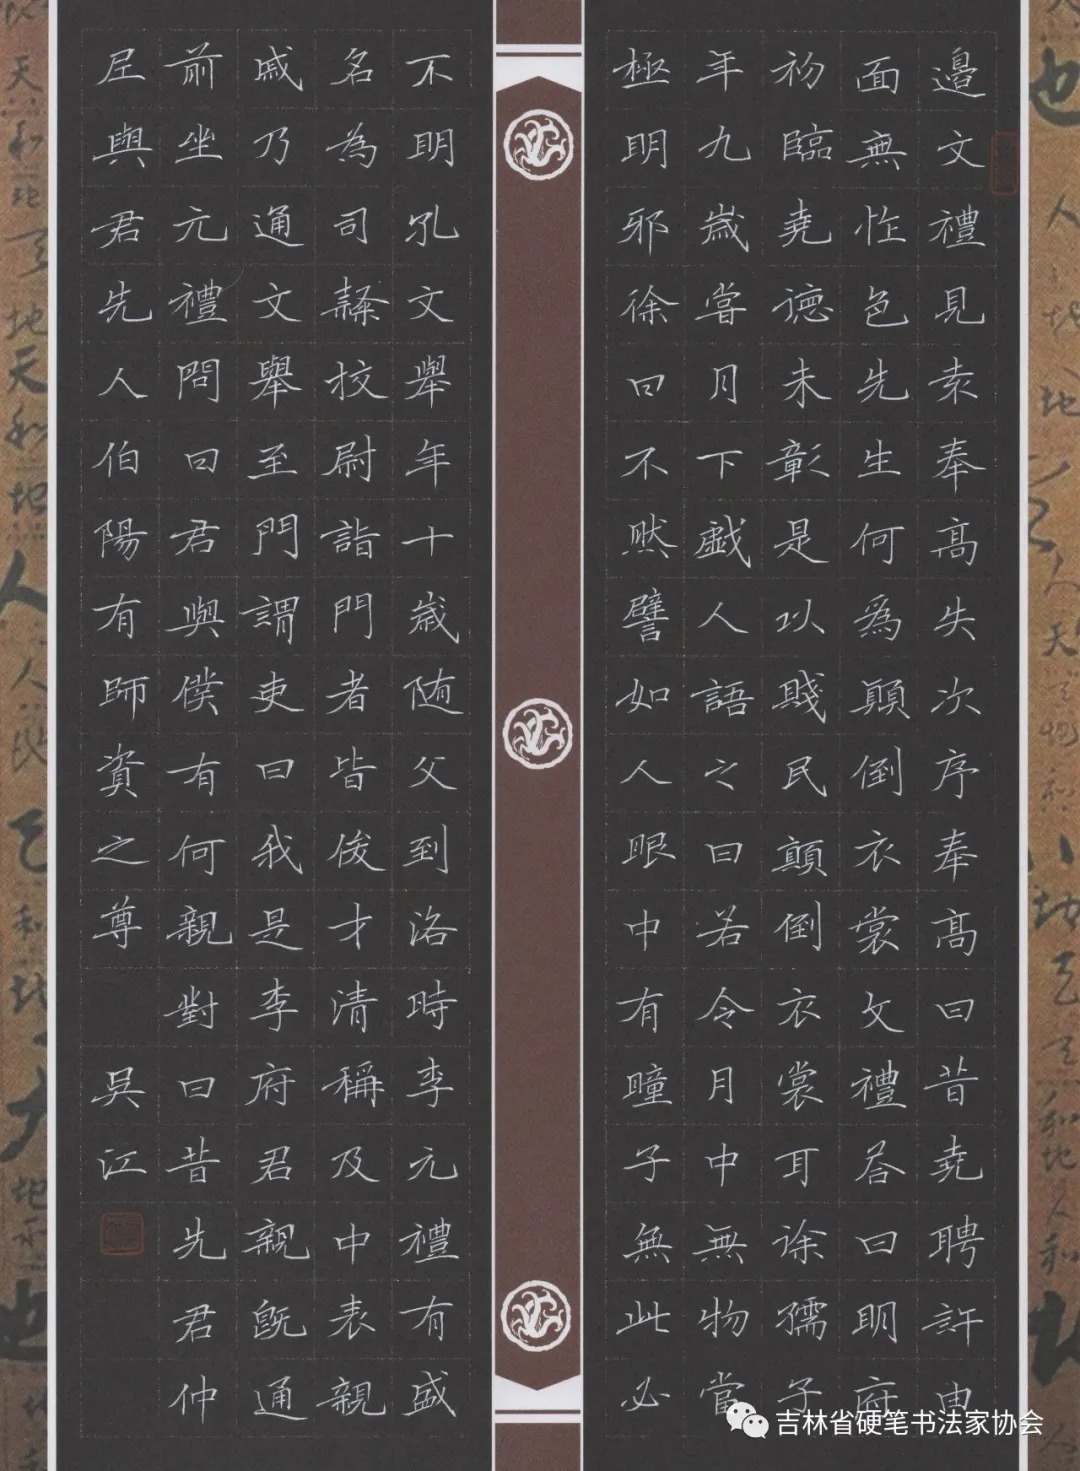 邉文禮見袁奉髙失次序奉髙曰昔堯聘許由
面無怍色先生何為顛倒衣裳文禮答曰明府
初臨堯德未彰是以賤民顛倒衣裳耳徐孺子
年九歲嘗月下戲人語之曰若令月中無物當
極明邪徐曰不然譬如人眼中有瞳子無此必
不明孔文舉年十歲随父到洛時李元禮有盛
名為司隸校尉詣門者皆俊才清稱及中表親
戚乃通文舉至門謂吏曰我是李府君親既通
前坐元禮問曰君與僕有何親對曰昔先君仲
尼與君先人伯陽有師資之尊
吴江
吉林省硬笔书法家协会